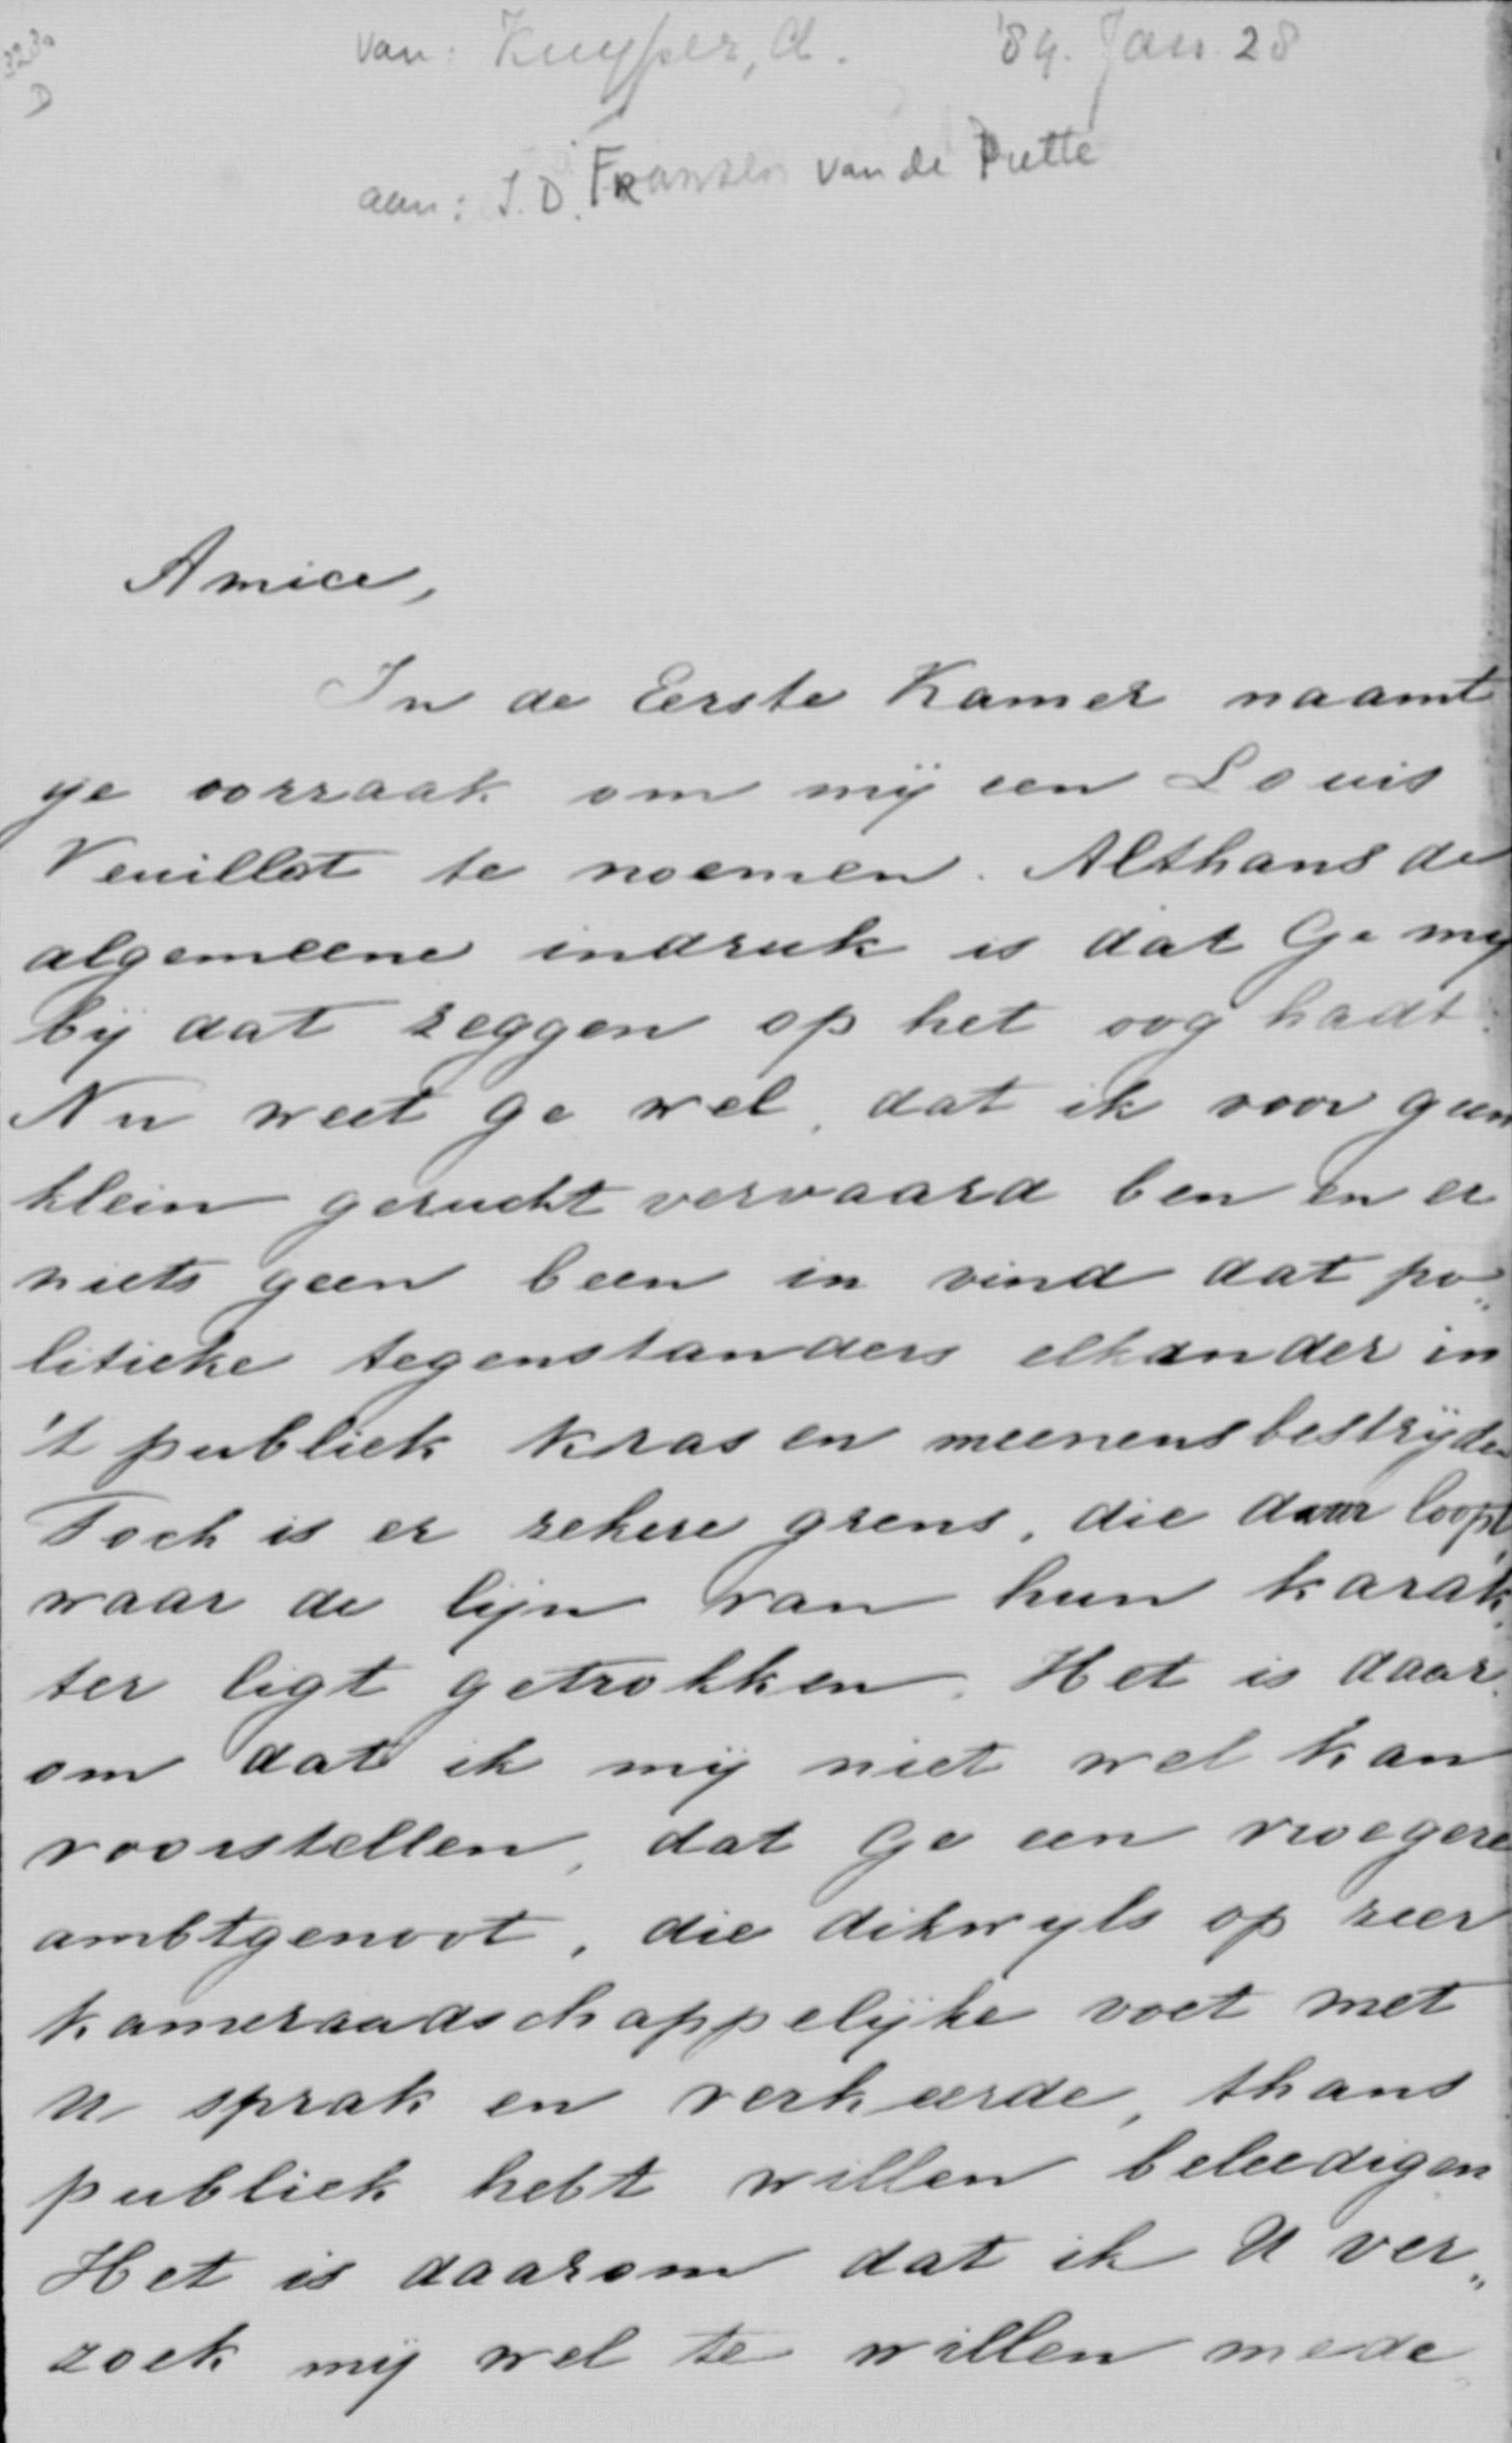 3230
D
van: Kuyper, A. '89. Jan. 28
aan: I. D. Fransen van de Putte
Amice,
In de Eerste Kamer naamt
ge oorzaak om mij een Louis
Veuillot te noemen. Althans de
algemeene indruk is dat Ge mij
bij dat zeggen op het oog hadt.
Nu weet ge wel, dat ik voor geen
klein gerucht vervaard ben en er
niets geen been in vind dat po„
litieke tegenstanders elkander in
't publiek kras en meenens bestrijden
Toch is er zekere grens, die daar loopt,
waar de lijn van hun karak„
ter ligt getrokken. Het is daar„
om dat ik mij niet wel kan
voorstellen, dat Ge een vroegere
ambtgenoot, die dikwyls op zeer
kameraadschappelijke voet met
U sprak en verkeerde, thans
publiek hebt willen beleedigen
Het is daarom dat ik U ver„
zoek mij wel te willen mede